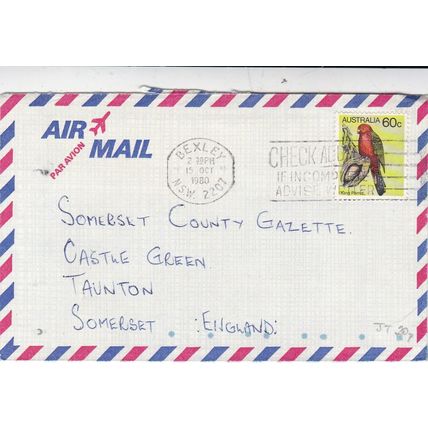 AIR
MAIL
PAR AVION
BEXLEY
2 30PM
15 OCT
1980
N.S.W. 2207
CHECK ADD
IF INCOMP
ADVISE WRITER
AUSTRALIA
60c
King Parrot
SOMERSET COUNTY GAZETTE.
CASTLE GREEN.
TAUNTON
SOMERSET :ENGLAND: